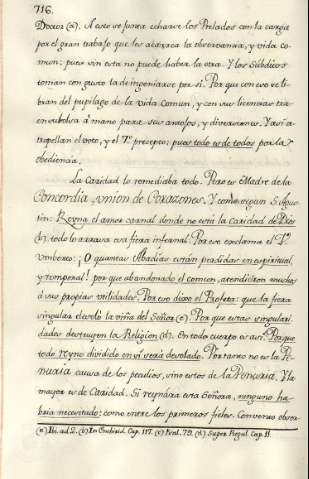 716.
Doctor (a). A esto se junta echarse los Prelados con la carga
por el gran trabajo que les acarrea la observancia, y vida co-
mun: pues sin esta no puede haber la otra. Y los Súbditos
toman con gusto la de ingeniarse por sí. Por que con eso se li-
bran del pupilage de la vida comun, y con sus licencias tra
en bolsa á mano para sus antojos, y diversiones. Y así a-
tropellan el voto, y el 7º. precepto: pues todo es de todos por la
obediencia.
La Caridad lo remediaba todo. Pero es Madre de la
Concordia, y union de Corazones. Y como dijo S. Agus-
tin: Reyna el amor carnal donde no está la caridad de Dios
(b). todo lo arrasa esa fiera infernal. Por eso exclama el Pe.
Umberto: ¡O quantas Abadias están perdidas en espiritual,
y temporal! por que abandonado el comun, atendieron muchos
á sus propias utilidades. Por eso dixo el Profeta: que la fiera
singular asoló la viña del Señor (c). Por que estas singulari-
dades destruyen la Religion (d). En todo cuerpo es así. Porque
todo reyno dividido en sí será desolado. Por tanto no es la Pe-
nuria causa de los peculios, sino estos de la Penuria. Y la
mayor es de Caridad. Si reynára esta Señora, ninguno ha-
bria necesitado: como entre los primeros fieles. Converso obser
(a) Ibi. ad 2. (b) In Enchirid. Cap. 117. (c) Psal. 79. (d) Super Regul. Cap. 11.